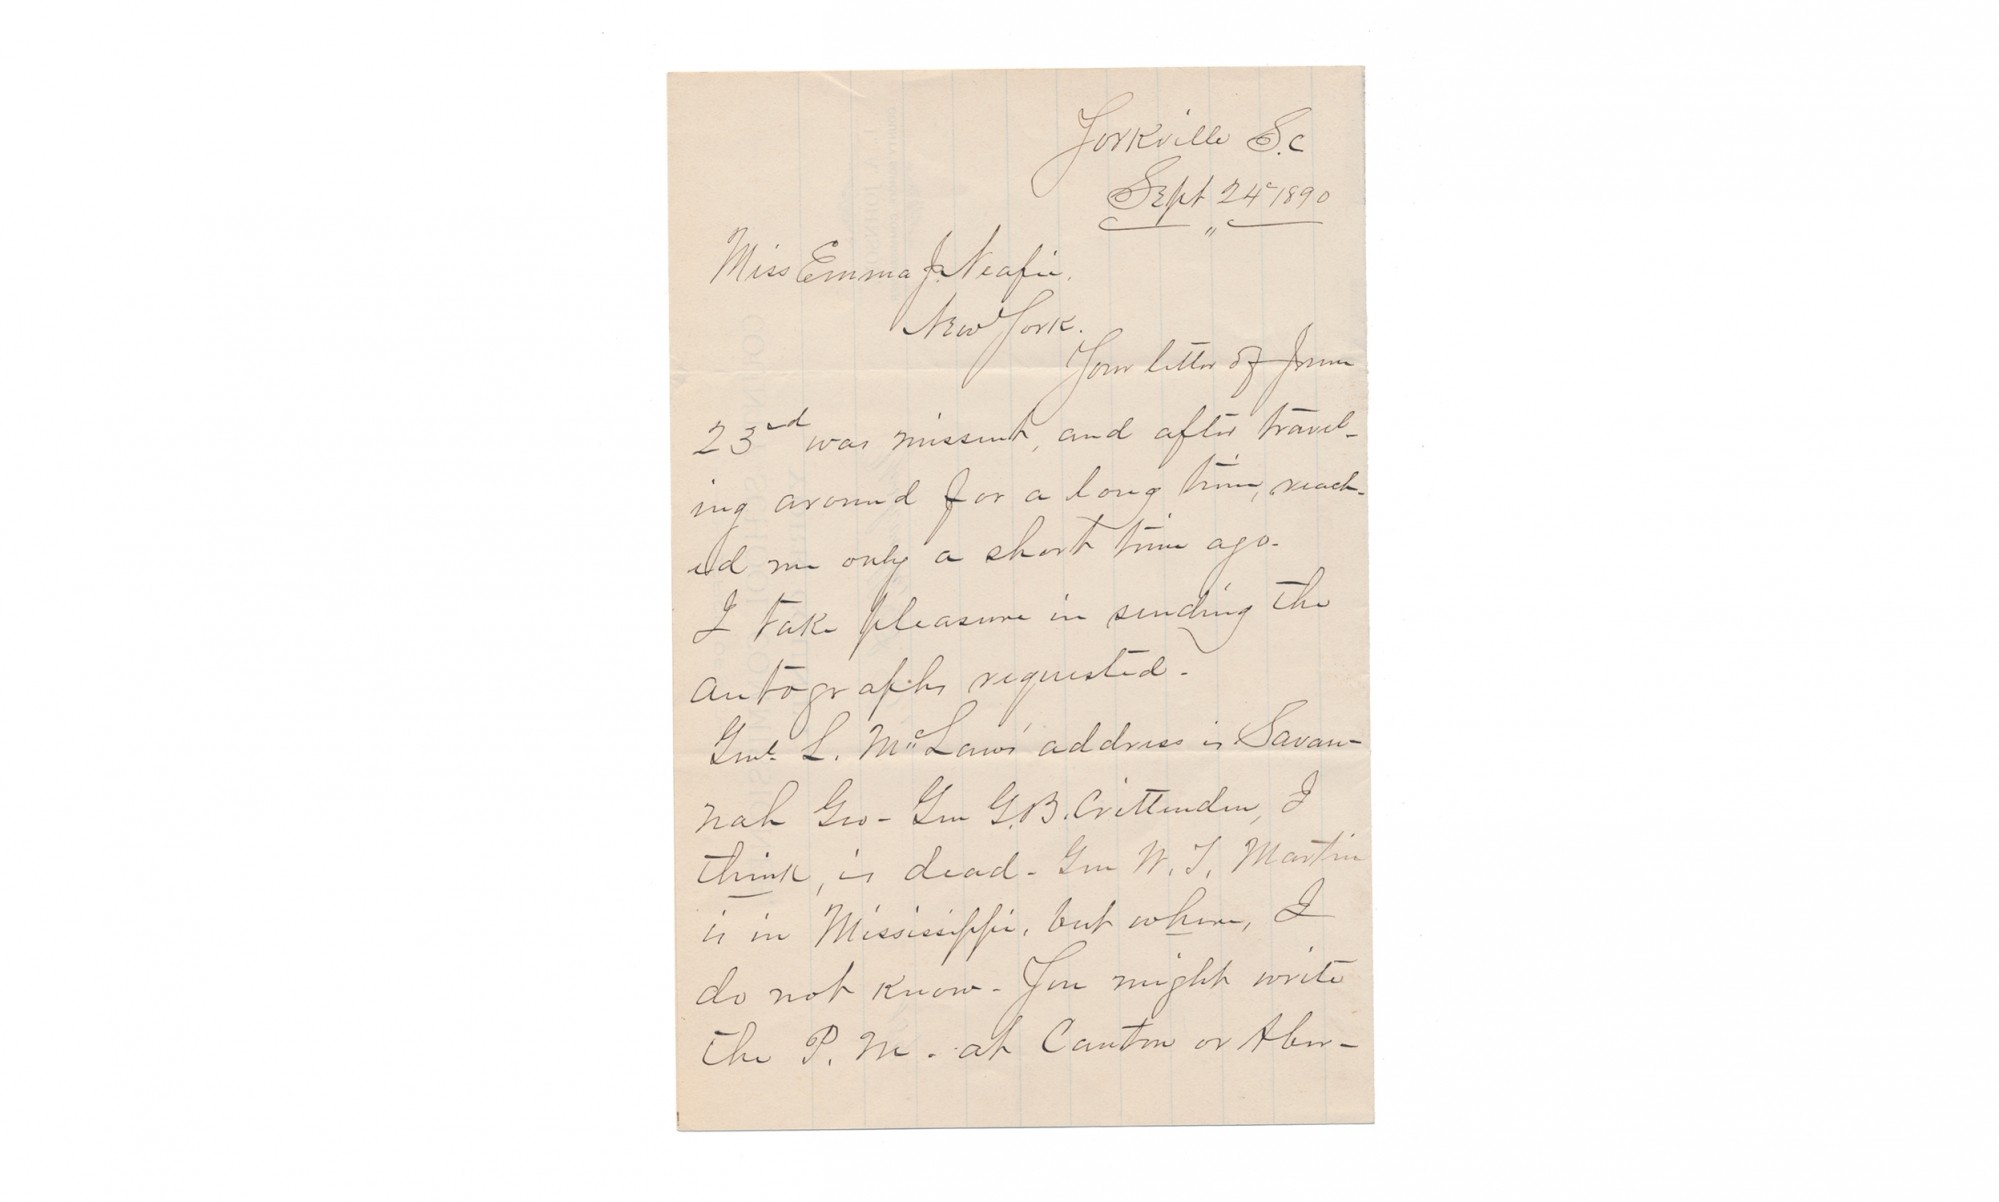 Yorkville S.C
Sept 24th 1890
Miss Emma J. Neafie,
New York.
Your letter of June
23rd was missent, and after travel-
ing around for a long time, reach-
ed me only a short time ago.
I take pleasure in sending the
autographs requested.
Genl. L. McLaws' address is Savan-
nah Geo- Gen G.B. Crittenden, I
think, is dead- Gen W. T. Martin
is in Mississippi, but where, I
do not know- You might write
the P. M. at Canton or Aber-